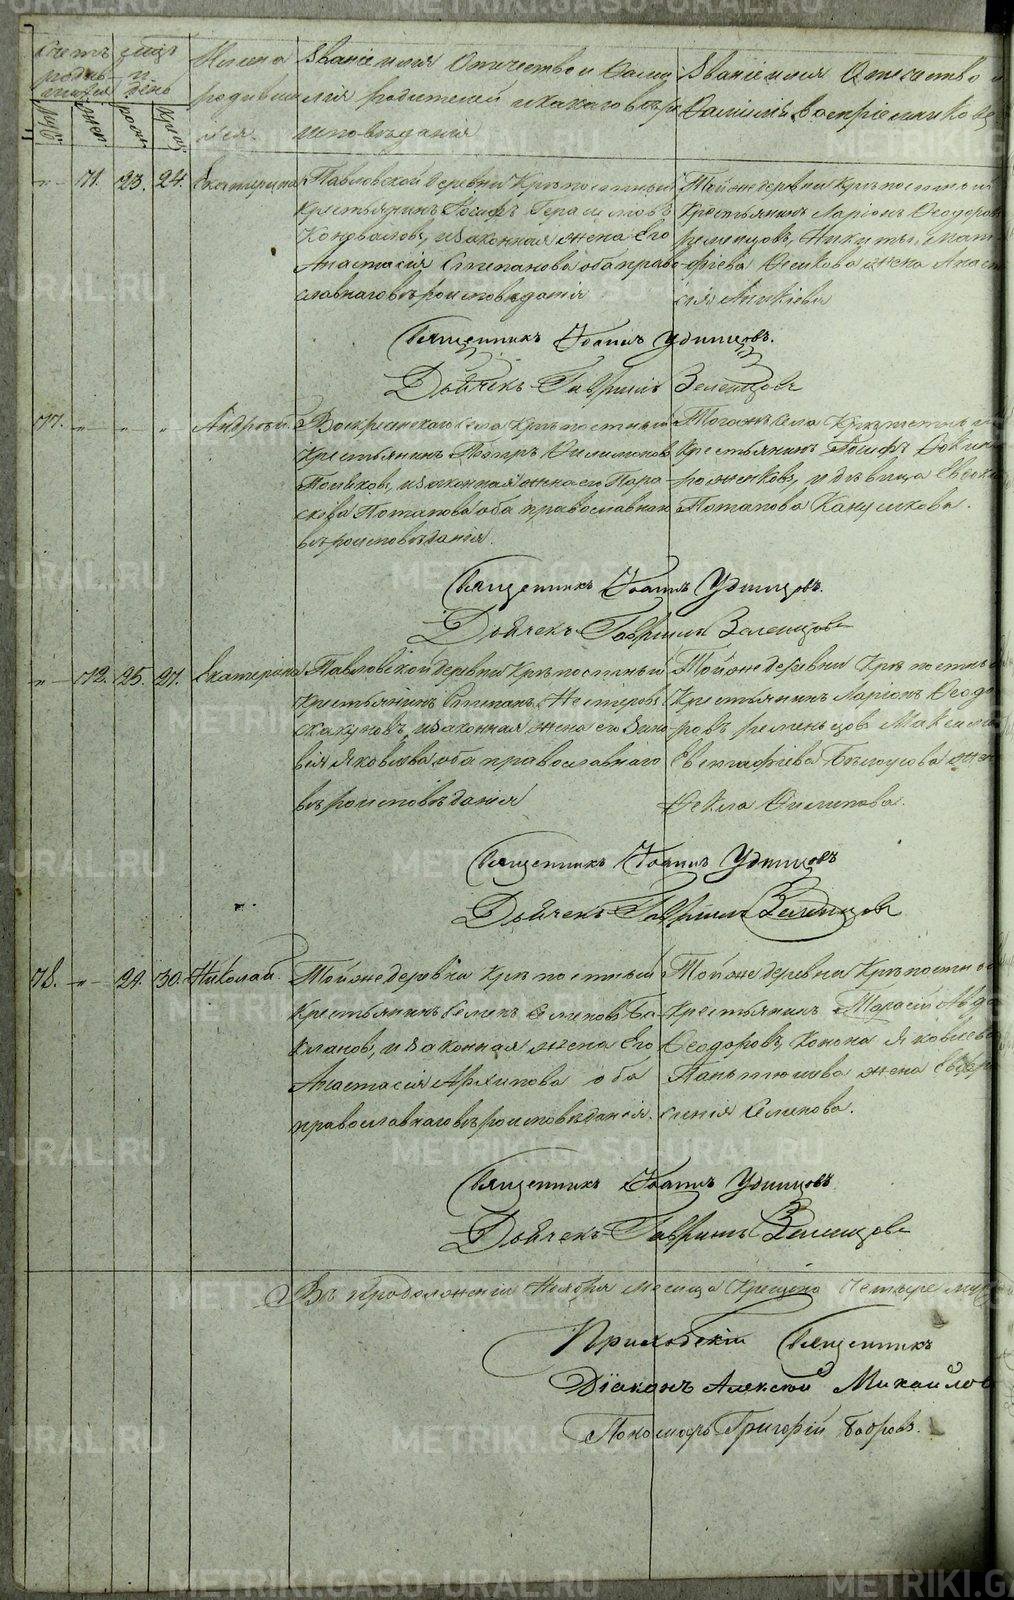 Счетъ
родив-
шихся
Муж
жен
мцъ
и
день
рожд
крещ
Имена
родивши
хся.
Званіе имя Отчество и Фами
лія родителей и какого вѣро
исповѣданія
Званіе имя Отчество и
Фамилія воспріемниковъ
71. 23. 24. Екатерина
Павловской деревни Крѣпостный
крестьянинъ Іосифъ Герасимовъ
Коновалов, и законная жена его
Анастасія Степанова оба право-
славнаго вѣроисповѣданія
Тойже деревни крѣпостный
крестьянинъ Ларіонъ Феодоров
ременцовъ, Никиты мат-
фіева жена Анаст
сія
Священникъ Іоаннъ Удинцовъ.
Дьячекъ Гавріилъ Зеленцовъ
77. Андрей.
Воскресенскаго села крѣпостный
крестьянинъ Петръ Филимонов
законная жена его Пара-
скева Потапова оба православнаго
вѣроисповѣданія.
Тогоже села Крѣпостный
Крестьянинъ Іосифъ
и дѣвица
Потапова
Священникъ Іоаннъ Удинцовъ.
Дьячекъ Гавріилъ Зеленцовъ
72. 25. 27. Екатерина
Павловской деревни Крѣпостный
крестьянинъ Степанъ Нестеровъ
скакуновъ, и законная жена его Зино
вія Яковлева оба православнаго
вѣроисповѣданія
Тойже деревни Крѣпостный
Крестьянинъ Ларіонъ Феодо
ровъ ременьцов Максима
Евстафіева Бѣлоусова жен
Фекла Филипова.
Священникъ Іоаннъ Удинцовъ
Дьячекъ Гавріилъ Зеленцовъ
78. 24. 30. Николай
Тойже деревни крѣпостный
Крестьянинъ Семенъ Семеновъ Ба
клановъ, и законная жена Его
Анастасія Архипова оба
православнаго вѣроисповѣданія.
Тойже деревни Крѣпостный
Крестьянинъ Тарасій
Феодоровъ, Конона Яковлева
Паньтюшева жена Евфро
синія Семенова.
Священникъ Іоаннъ Удинцовъ
Дьячекъ Гавріилъ Зеленцовъ
Въ продолженіи Ноября месяца Крещено Четыре
Приходскій Священникъ
Діаконъ Алексій Михайлов
Пономарь Григорій Бобровъ.
METRIKI.GASO-URAL.RU